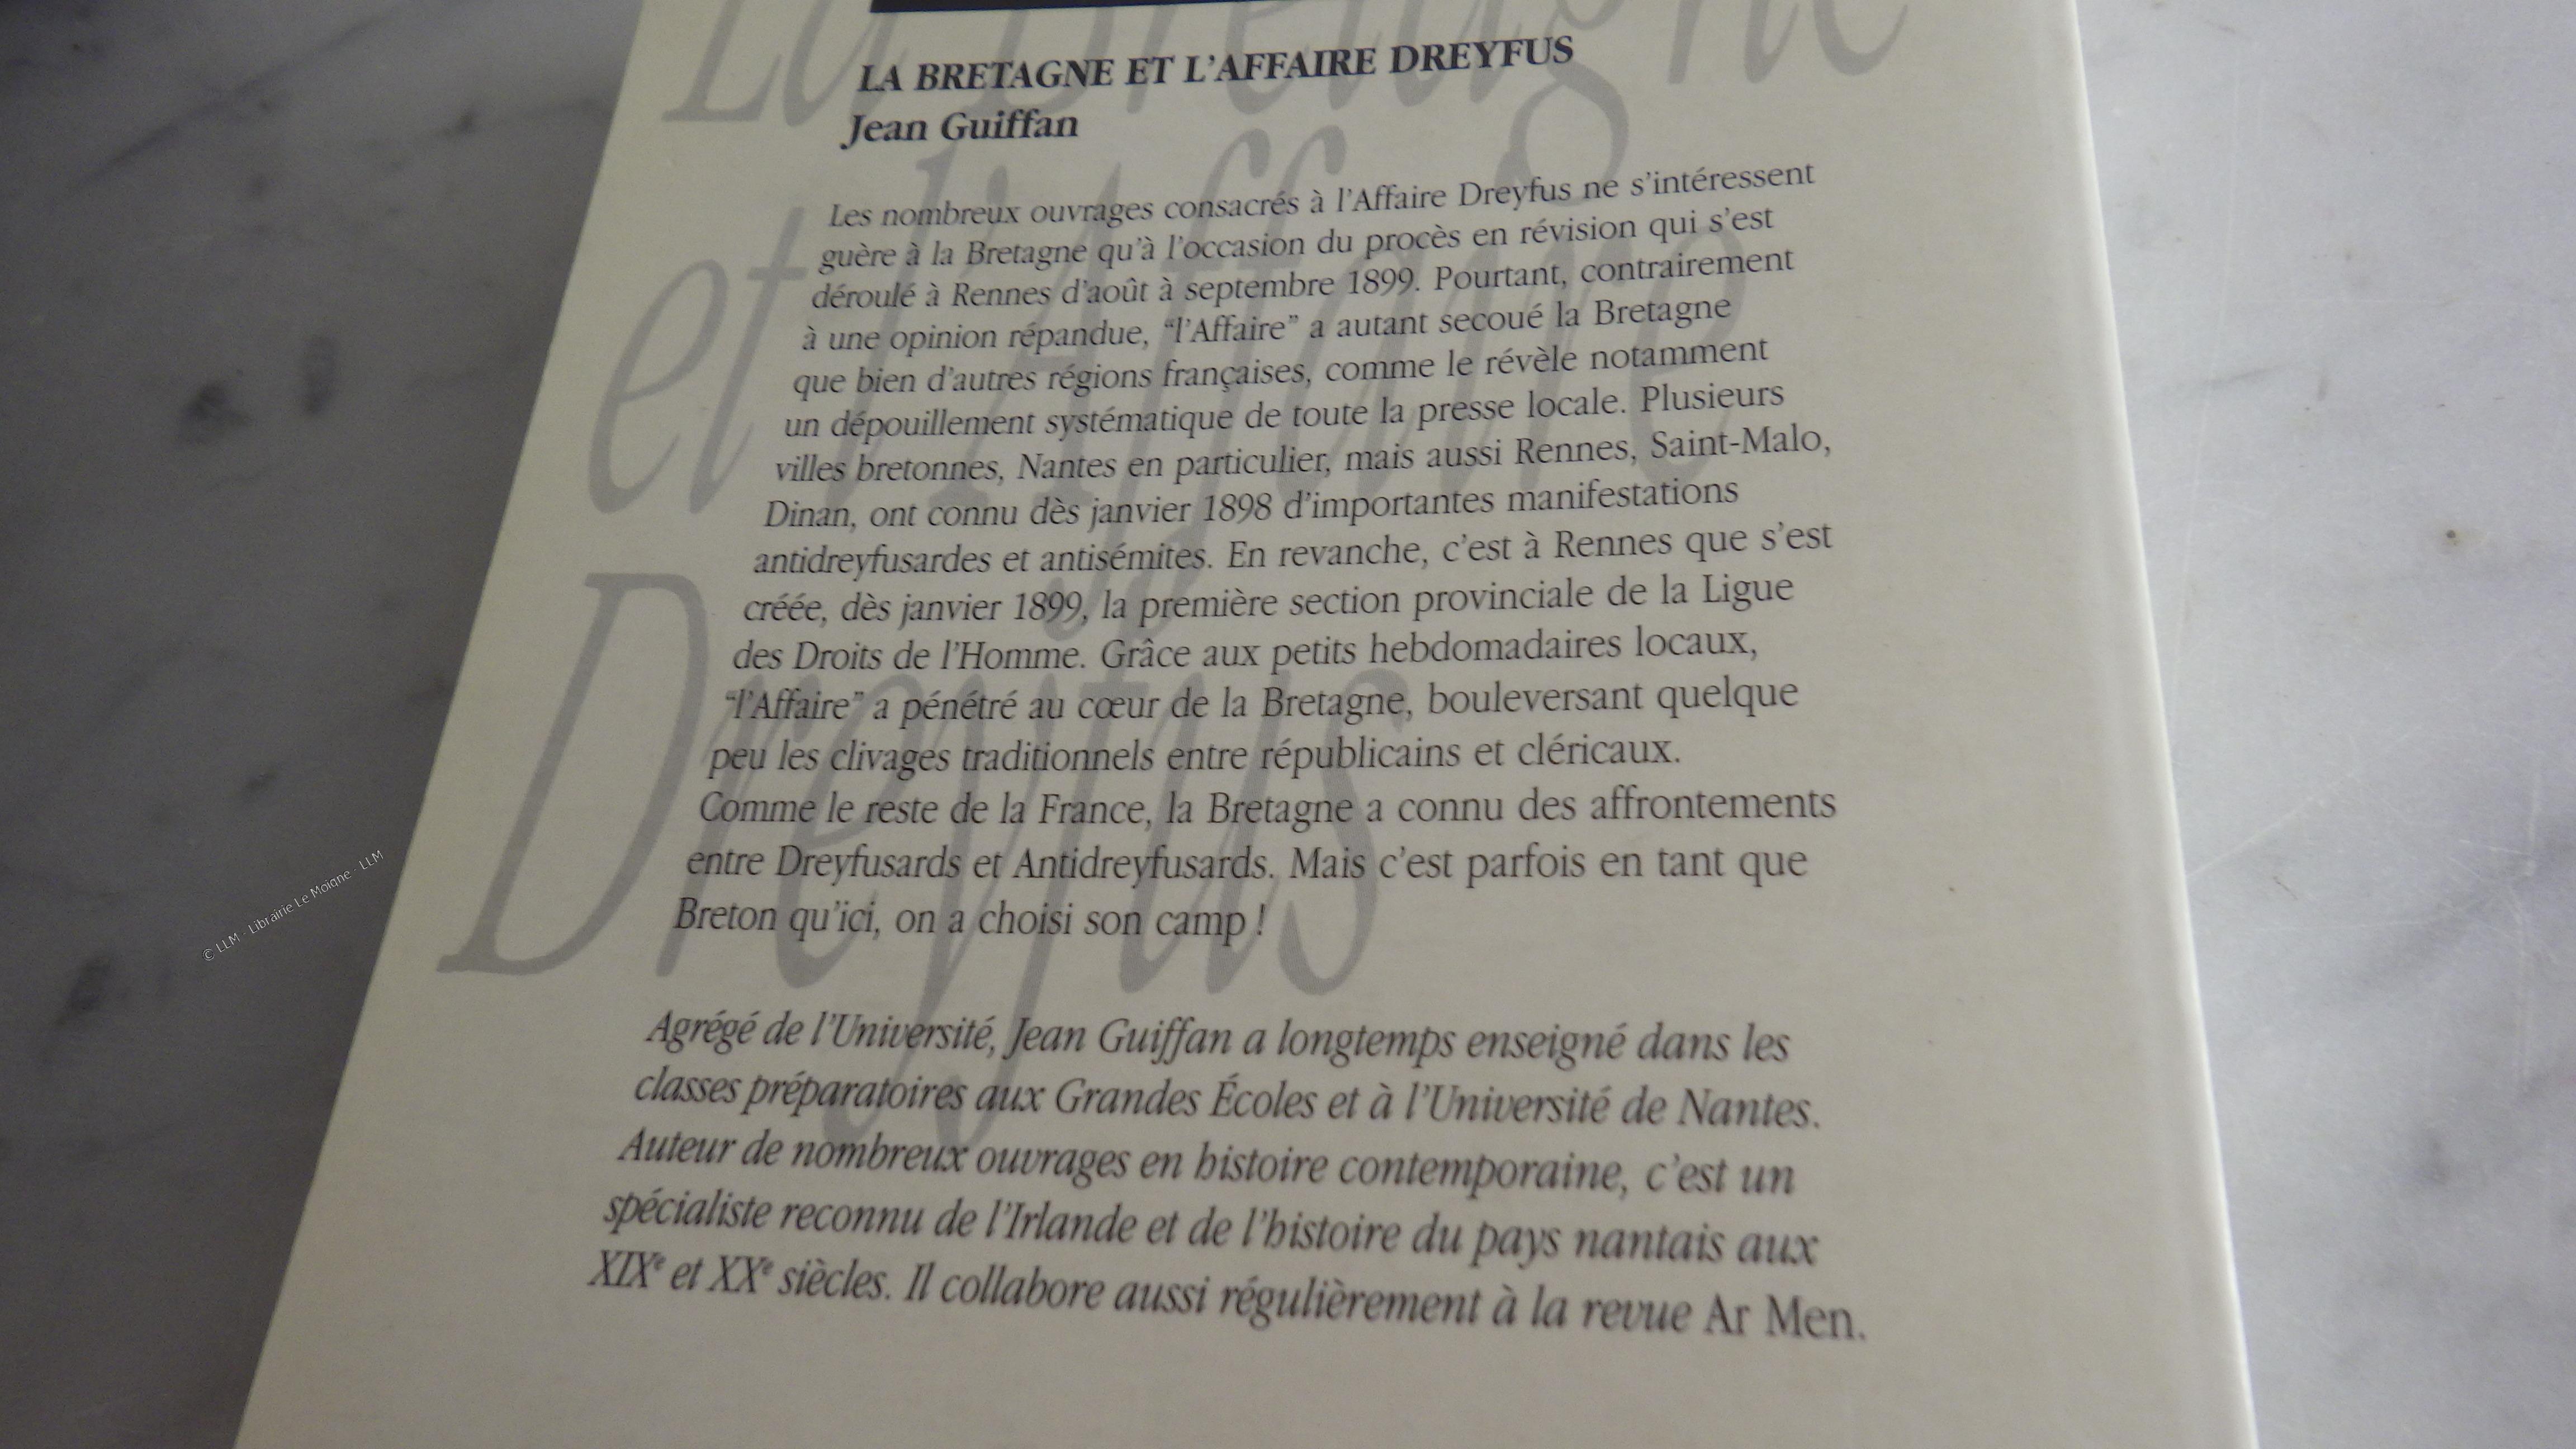 La Bretagne
et l'Affaire
Dreyfus
LA BRETAGNE ET L'AFFAIRE DREYFUS
Jean Guiffan
Les nombreux ouvrages consacrés à l'Affaire Dreyfus ne s'intéressent
guère à la Bretagne qu'à l'occasion du procès en révision qui s'est
déroulé à Rennes d'août à septembre 1899. Pourtant, contrairement
à une opinion répandue, “l'Affaire” a autant secoué la Bretagne
que bien d'autres régions françaises, comme le révèle notamment
un dépouillement systématique de toute la presse locale. Plusieurs
villes bretonnes, Nantes en particulier, mais aussi Rennes, Saint-Malo,
Dinan, ont connu dès janvier 1898 d'importantes manifestations
antidreyfusardes et antisémites. En revanche, c'est à Rennes que s'est
créée, dès janvier 1899, la première section provinciale de la Ligue
des Droits de l'Homme. Grâce aux petits hebdomadaires locaux,
“l'Affaire” a pénétré au cœur de la Bretagne, bouleversant quelque
peu les clivages traditionnels entre républicains et cléricaux.
Comme le reste de la France, la Bretagne a connu des affrontements
entre Dreyfusards et Antidreyfusards. Mais c'est parfois en tant que
Breton qu'ici, on a choisi son camp !
Agrégé de l'Université, Jean Guiffan a longtemps enseigné dans les
classes préparatoires aux Grandes Écoles et à l'Université de Nantes.
Auteur de nombreux ouvrages en histoire contemporaine, c'est un
spécialiste reconnu de l'Irlande et de l'histoire du pays nantais aux
XIXe et XXe siècles. Il collabore aussi régulièrement à la revue Ar Men.
© LLM - Librairie Le Moigne - LLM